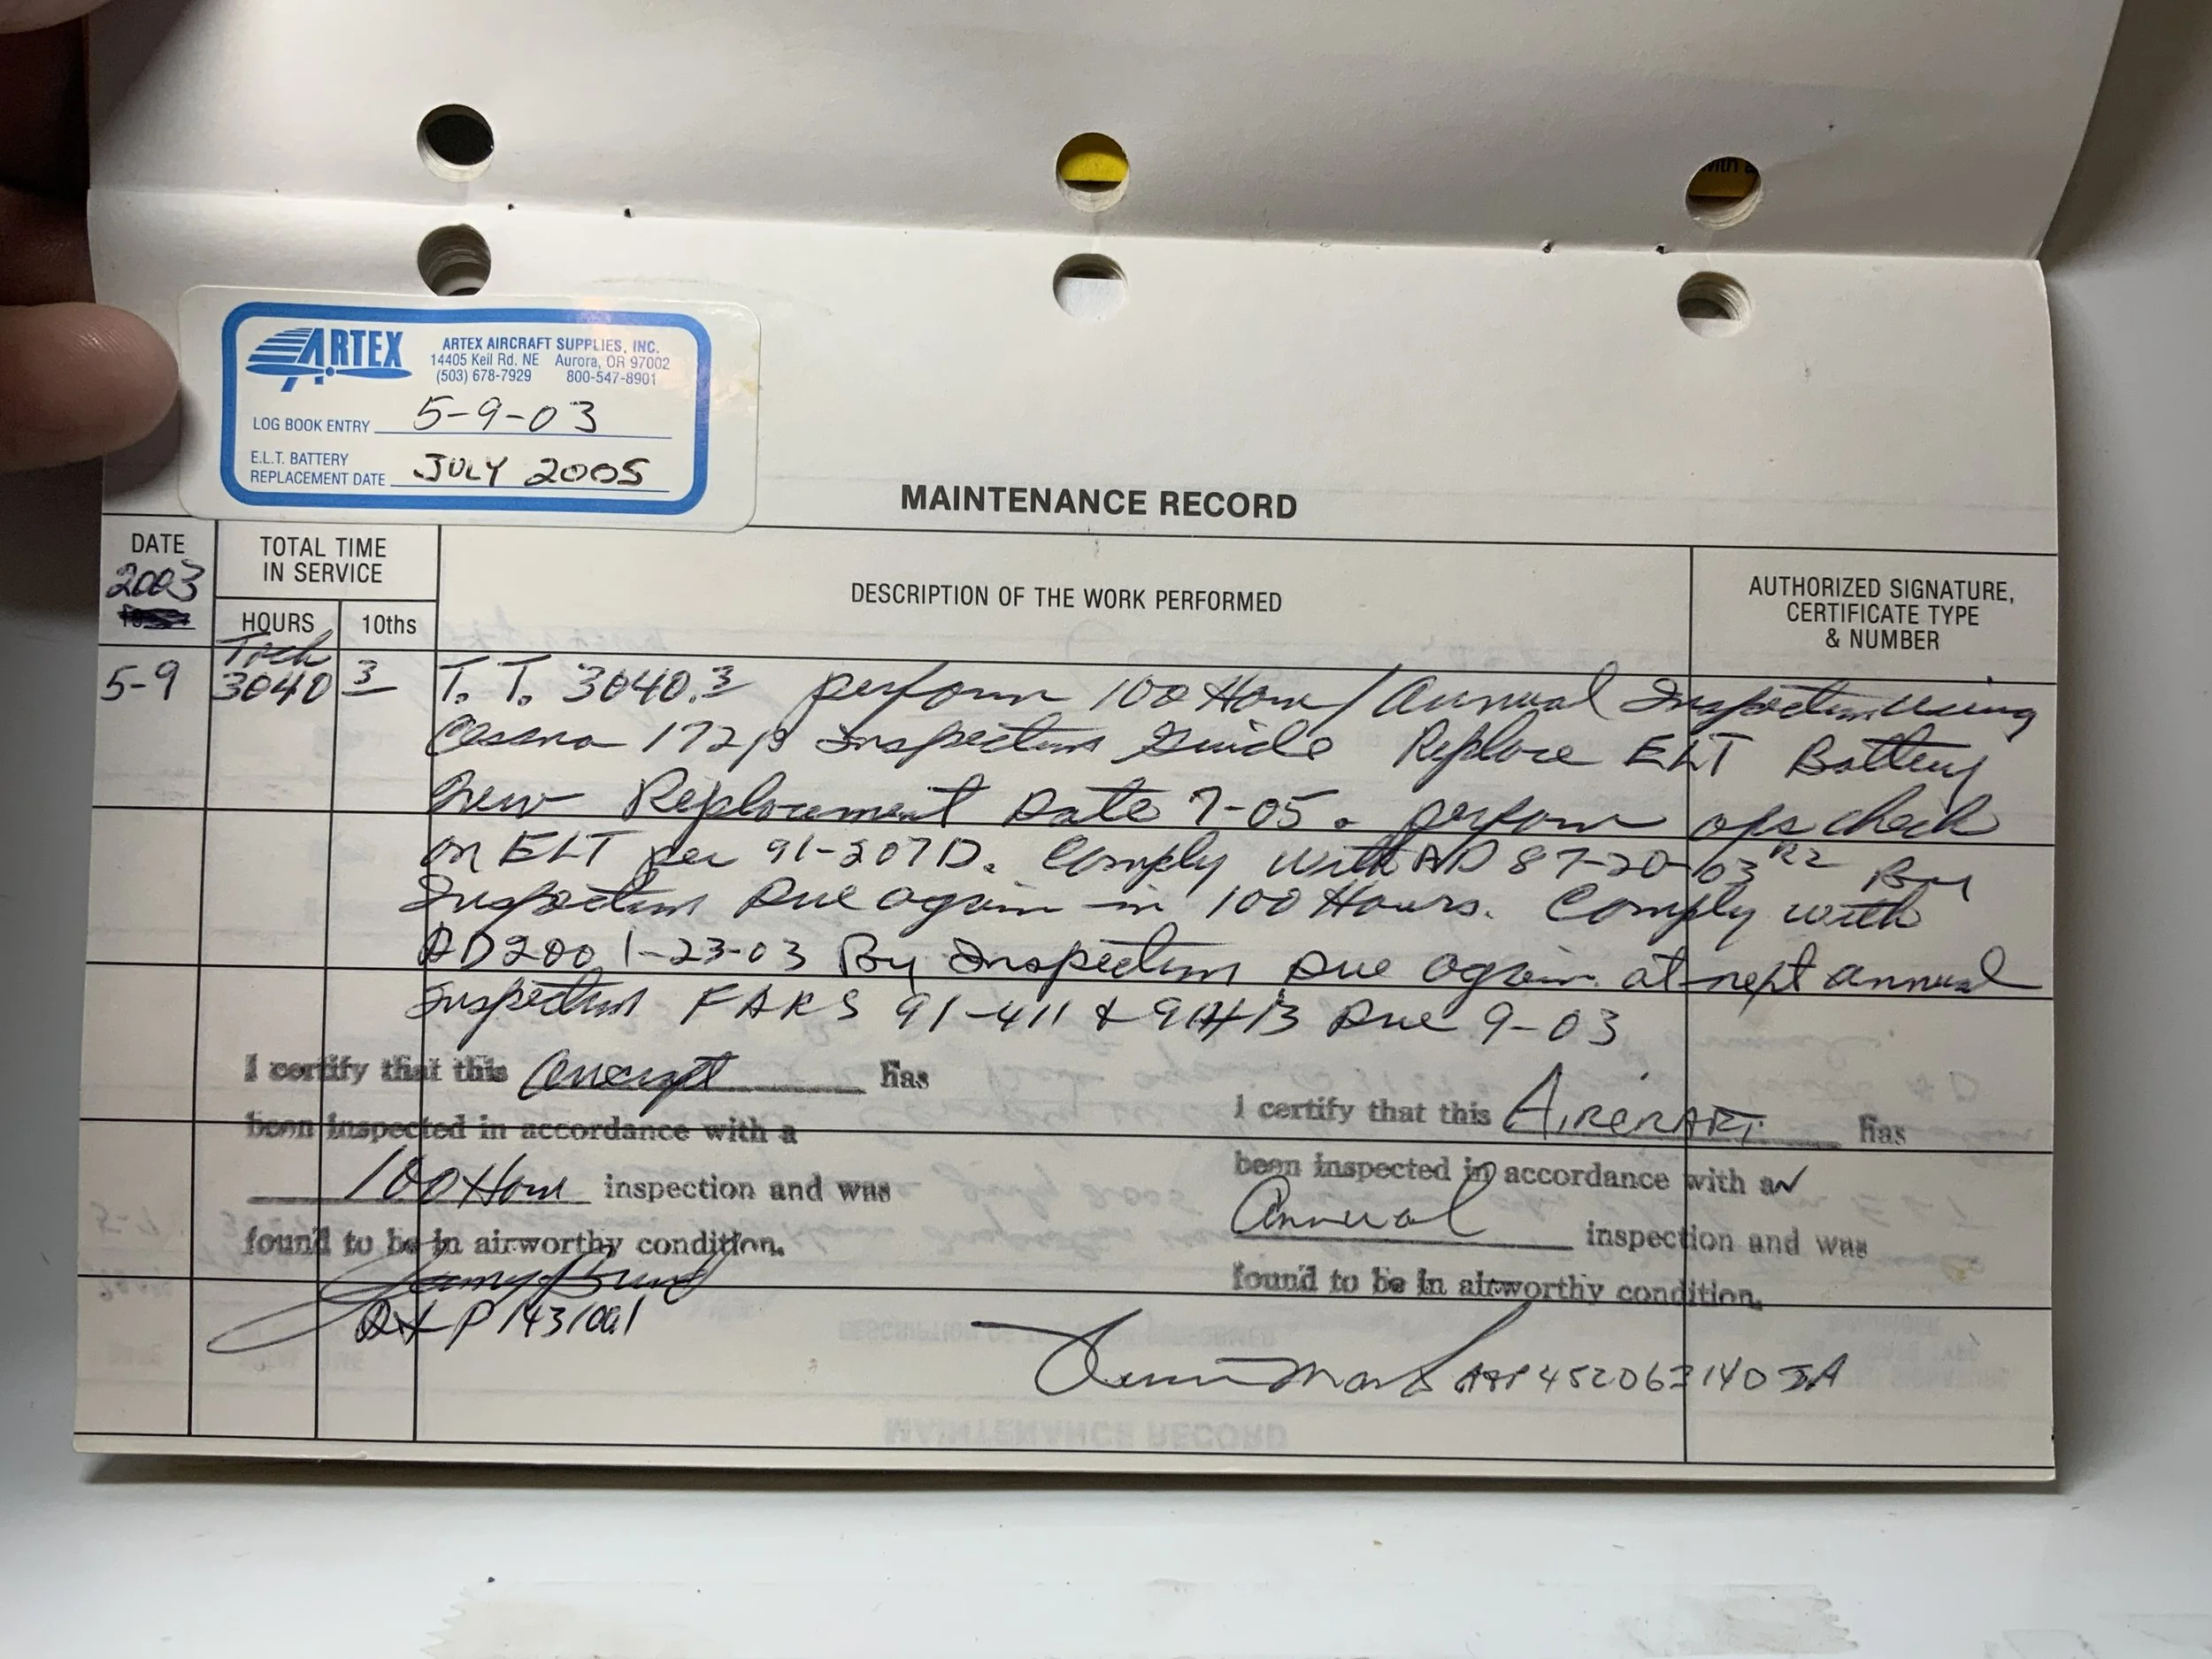 ARTEX
ARTEX AIRCRAFT SUPPLIES, INC.
14405 Keil Rd. NE Aurora, OR 97002
(503) 678-7929 800-547-8901
LOG BOOK ENTRY 5-9-03
E.L.T. BATTERY
REPLACEMENT DATE JULY 2005
MAINTENANCE RECORD
DATE
2003
TOTAL TIME
IN SERVICE
HOURS
10ths
DESCRIPTION OF THE WORK PERFORMED
AUTHORIZED SIGNATURE,
CERTIFICATE TYPE
& NUMBER
Tach
5-9 3040 3 T.T. 3040.3 perform 100 Hour/Annual Inspection using
Cessna 172p Inspection Guide Replace ELT Battery
New Replacement Date 7-05. perform ops check
on ELT per 91-207D. Comply with AD 87-20-03 R2 By
Inspection Due again in 100 Hours. Comply with
AD2001-23-03 By Inspection Due again at next annual
Inspection FARS 91-411 & 91413 Due 9-03
I certify that this aircraft has
been inspected in accordance with a
100 Hour inspection and was
found to be in airworthy condition.
I certify that this AIRCRAFT has
been inspected in accordance with an
Annual inspection and was
found to be in airworthy condition.
A&P 452063140 IA